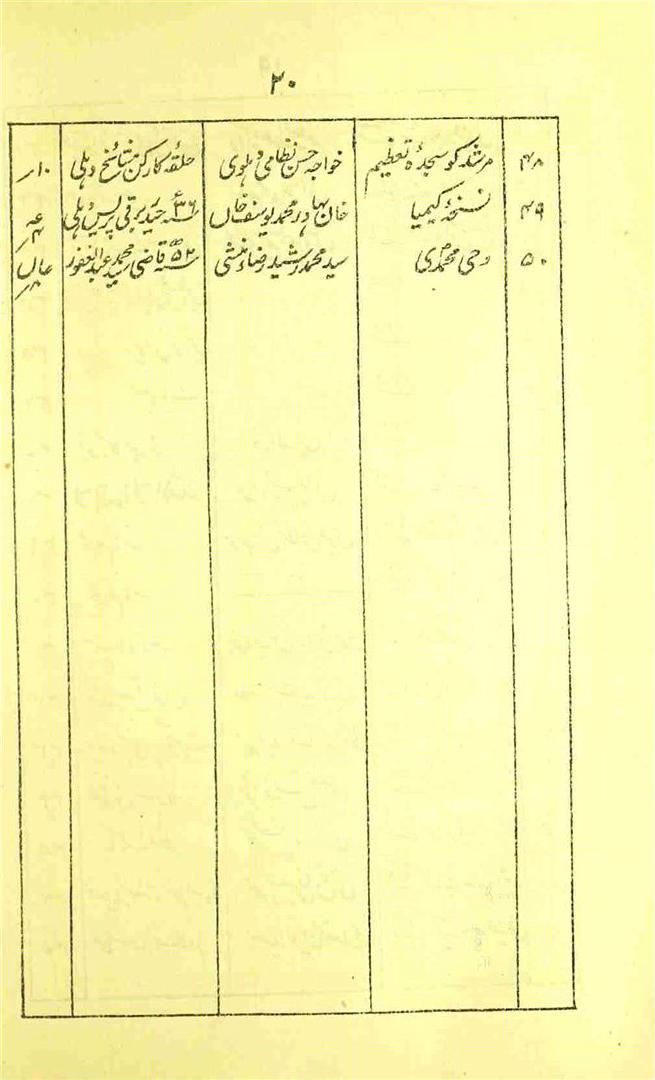 ۲۰
۴۸ مرشد کو سجدۂ تعظیم خواجہ حسن نظامی دہلوی حلقۂ کارکن مشائخ دہلی ۱۰؍
۴۹ نسخۂ کیمیا خان بہادر محمد یوسف خاں ۳۶ء جید برقی پریس دہلی
۵۰ وحی محمدی سید محمد رشید رضا منشی ۵۲ قاضی محمد عبدالغفور